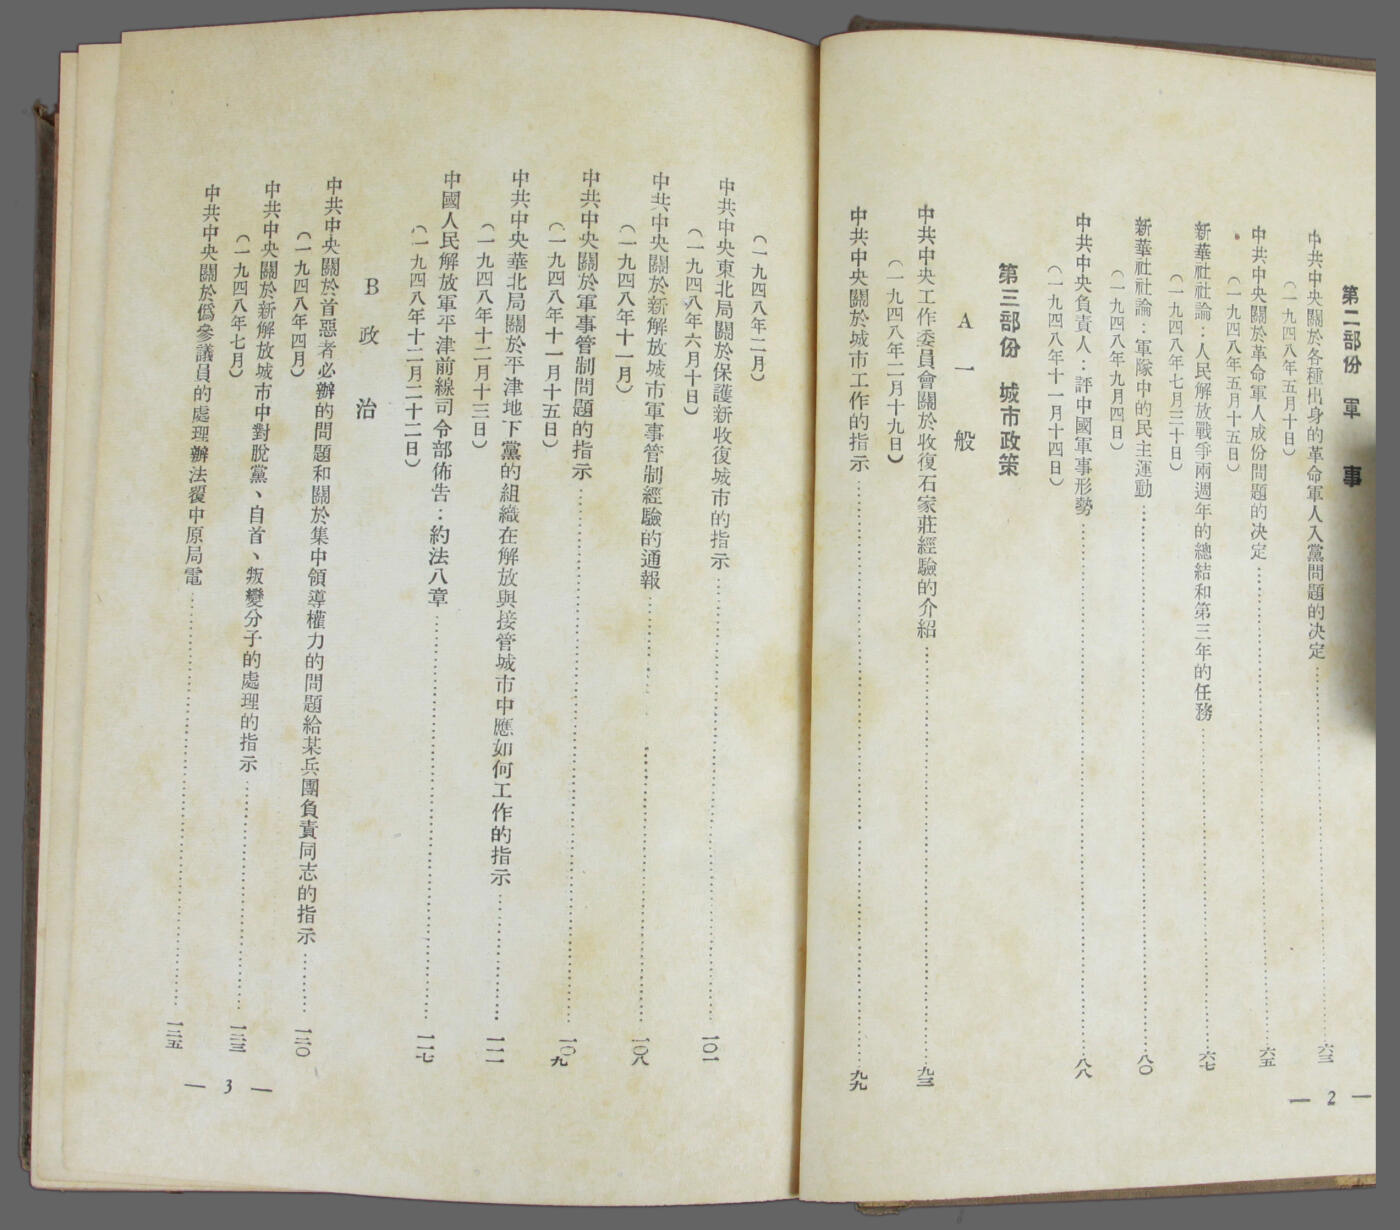 第二部份　軍　事
中共中央關於各種出身的革命軍人入黨問題的決定……六三
（一九四八年五月十日）
中共中央關於革命軍人成份問題的決定……六五
（一九四八年五月十五日）
新華社社論：人民解放戰爭兩週年的總結和第三年的任務……六七
（一九四八年七月三十日）
新華社社論：軍隊中的民主運動……八〇
（一九四八年九月四日）
中共中央負責人：評中國軍事形勢……八八
（一九四八年十一月十四日）
第三部份　城市政策
A　一　般
中共中央工作委員會關於收復石家莊經驗的介紹……九三
（一九四八年二月十九日）
中共中央關於城市工作的指示……九九
— 2 —
（一九四八年二月）
中共中央東北局關於保護新收復城市的指示……一〇一
（一九四八年六月十日）
中共中央關於新解放城市軍事管制經驗的通報……一〇八
（一九四八年十一月）
中共中央關於軍事管制問題的指示……一〇九
（一九四八年十一月十五日）
中共中央華北局關於平津地下黨的組織在解放與接管城市中應如何工作的指示……一一一
（一九四八年十二月十三日）
中國人民解放軍平津前線司令部佈告：約法八章……一一七
（一九四八年十二月二十二日）
B　政　治
中共中央關於首惡者必辦的問題和關於集中領導權力的問題給某兵團負責同志的指示……一二〇
（一九四八年四月）
中共中央關於新解放城市中對脫黨、自首、叛變分子的處理的指示……一二三
（一九四八年七月）
中共中央關於僞參議員的處理辦法覆中原局電……一二五
— 3 —